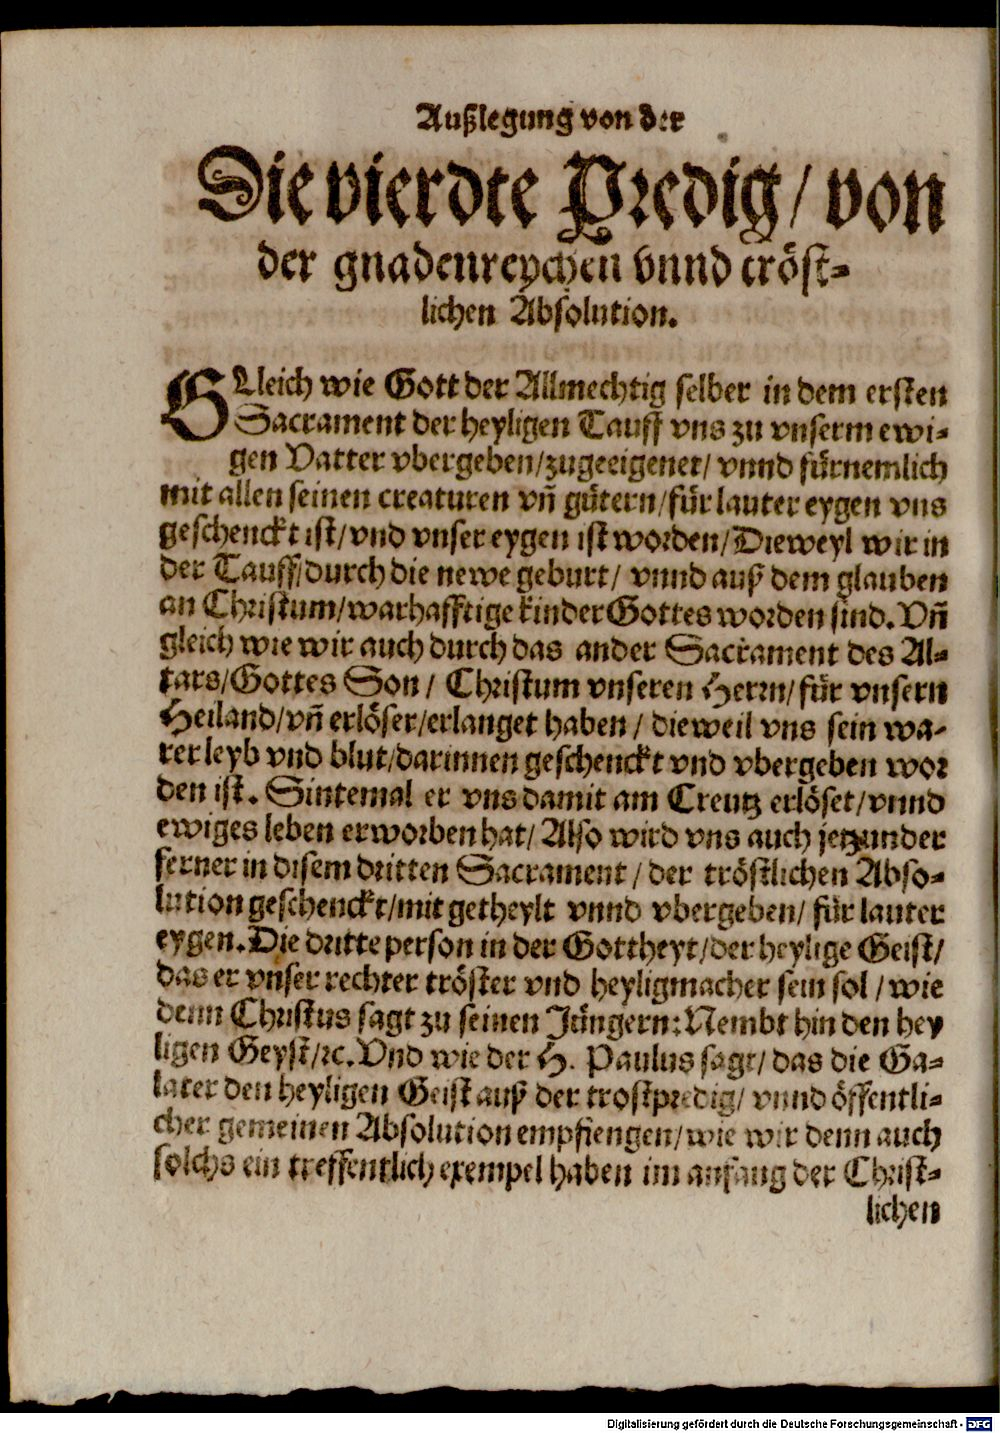 Außlegung von der
Die vierdte Predig/ von
der gnadenreychen vnnd tröst-
lichen Absolution.
GLeich wie Gott der Allmechtig selber in dem ersten
Sacrament der heyligen Tauff vns zu vnserm ewi-
gen Vatter vbergeben/zugeeigenet/ vnnd fürnemlich
mit allen seinen creaturen vñ gütern/für lauter eygen vns
geschenckt ist/vnd vnser eygen ist worden/Dieweyl wir in
der Tauff/durch die newe geburt/ vnnd auß dem glauben
an Christum/warhafftige kinder Gottes worden sind. Vñ
gleich wie wir auch durch das ander Sacrament des Al-
tars/Gottes Son/ Christum vnseren Herrn/für vnsern
Heiland/vñ erlöser/erlanget haben/ dieweil vns sein wa-
rer leyb vnd blut/darinnen geschenckt vnd vbergeben wor
den ist. Sintemal er vns damit am Creutz erlöset/vnnd
ewiges leben erworben hat/ Also wird vns auch jetzunder
ferner in disem dritten Sacrament/ der tröstlichen Abso-
lution geschenckt/mit getheylt vnnd vbergeben/ für lauter
eygen. Die dritte person in der Gottheyt/der heylige Geist/
das er vnser rechter tröster vnd heyligmacher sein sol/ wie
denn Christus sagt zu seinen Jüngern: Nembt hin den hey
ligen Geyst/ꝛc. Vnd wie der H. Paulus sagt/ das die Ga-
later den heyligen Geist auß der trostpredig/ vnnd öffentli-
cher gemeinen Absolution empfiengen/wie wir denn auch
solchs ein treffentlich exempel haben im anfang der Christ-
lichen
Digitalisierung gefördert durch die Deutsche Forschungsgemeinschaft - DFG